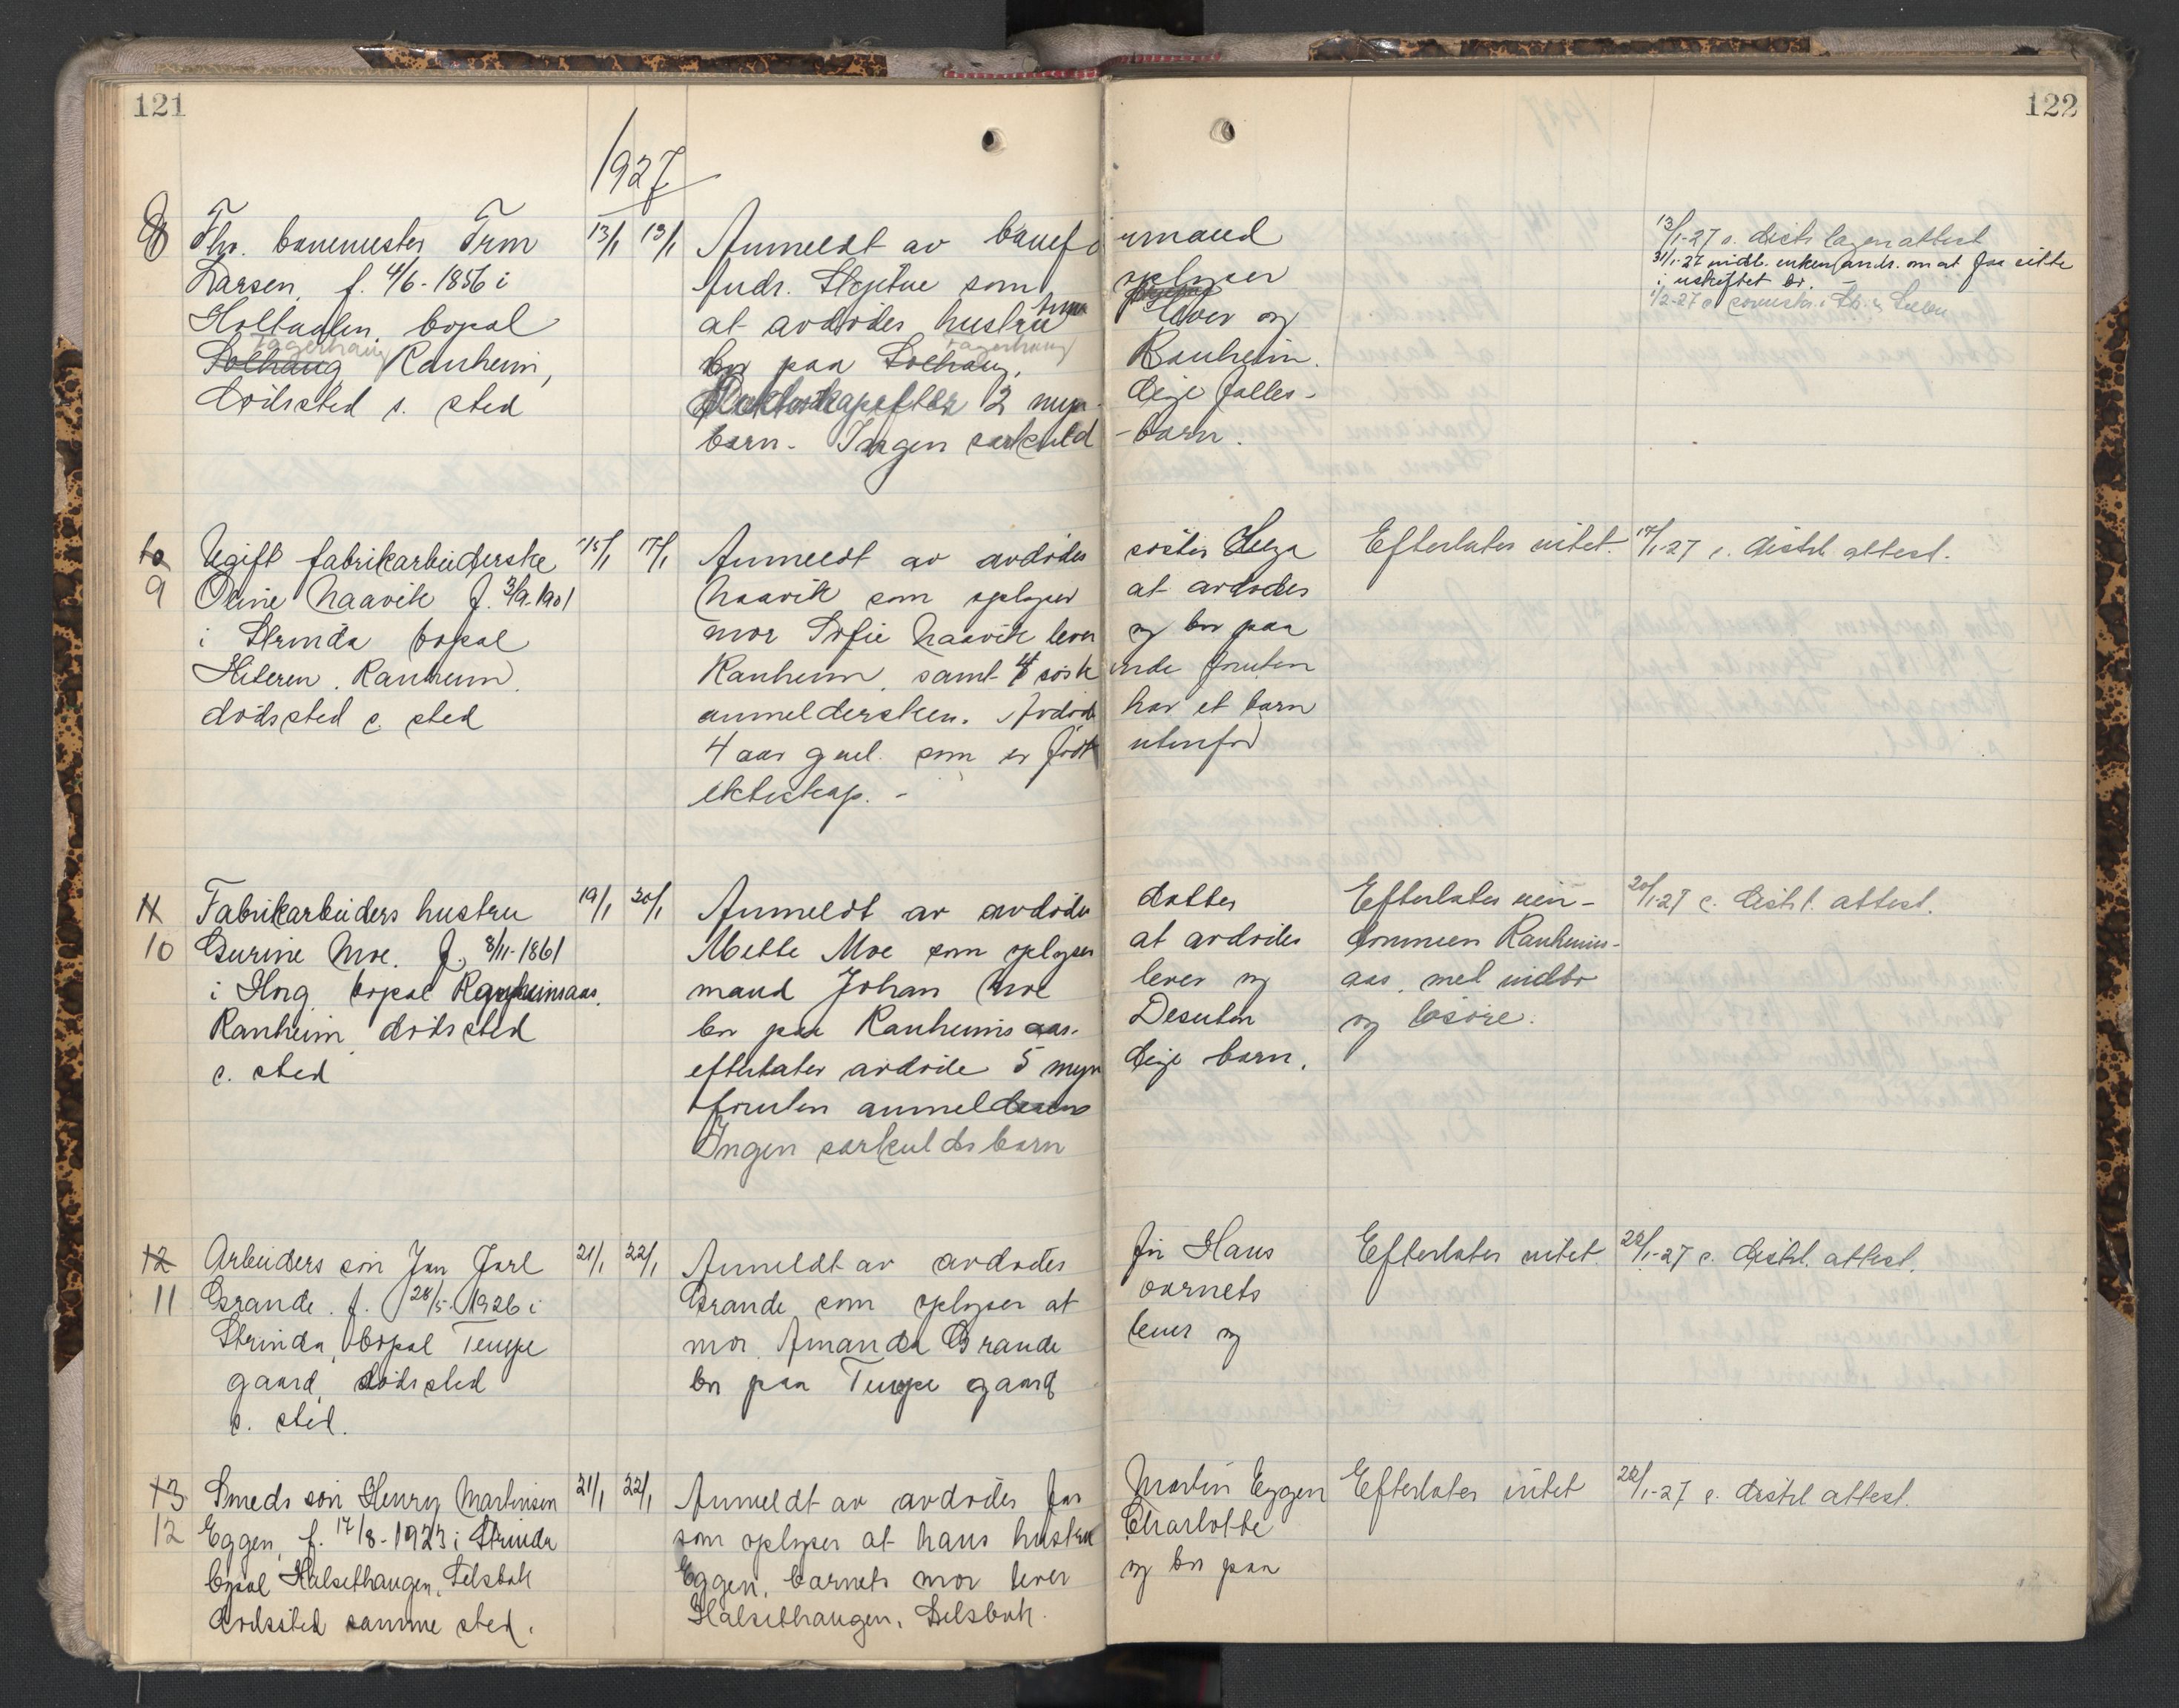 121
122
1927
8
Fhv. banemester Tron
Larsen, f. 4/6-1856 i
Holtaalen, bopæl
Fagerhaug
Solhaug Ranheim,
dødssted s. sted
13/1 13/1
Anmeldt av baneformand
Andr. som oplyser
at avdødes hustru lever og
Fagerhaug
bor paa Solhaug, Ranheim.
2 myndige fælles-
barn. Ingen særkuldbarn.
13/1-27 s. distr lagen attest
31/1-27 midl. enken andr. om at faa sitte
i uskiftet bo.
1/2-27
10
9
Ugift fabrikarbeiderske
Oline Naavik f. 3/9-1901
i Strinda bopæl
Hiteren, Ranheim,
dødssted s. sted
15/1 17/1
Anmeldt av avdødes søster Helga
Naavik som oplyser at avdødes
mor Sofie Naavik lever og bor paa
Ranheim, samt 4 søskende foruten
anmeldersken. Avdøde har et barn
4 aar gml. som er født utenfor
ekteskap. -
Efterlater intet.
17/1-27 s. distrl. attest.
11
10
Fabrikarbeiders hustru
Gurine Moe. f. 8/11-1861
i Horg bopæl Ranheimsaas,
Ranheim, dødssted
s. sted
19/1 20/1
Anmeldt av avdødes datter
Mette Moe som oplyser at avdødes
mand Johan Moe lever og
bor paa Ranheimsaas. Desuten
efterlater avdøde 5 myndige barn,
foruten anmelderen
Ingen særkuldsbarn
Efterlater eien-
dommen Ranheims-
aas, med indbo
og løsøre.
20/1-27 s. distrl. attest.
12
11
Arbeiders søn Jan Jarl
Grande. f. 28/5-1926 i
Strinda, bopæl Tempe
gaard, dødssted
s. sted.
21/1 22/1
Anmeldt av avdødes far Hans
Grande, som oplyser at barnets
mor Amanda Grande lever og
bor paa Tempe gaard
Efterlater intet.
22/1-27 s. distrl. attest.
13
12
Smeds søn Henry Martinsen
Eggen, f. 17/8-1923 i Strinda
bopæl Halsethaugen, Selsbak
dødssted samme sted.
21/1 22/1
Anmeldt av avdødes far Martin Eggen
som oplyser at hans hustru Charlotte
Eggen, barnets mor lever og bor paa
Halsethaugen, Selsbak.
Efterlater intet
22/1-27 s. distrl attest.